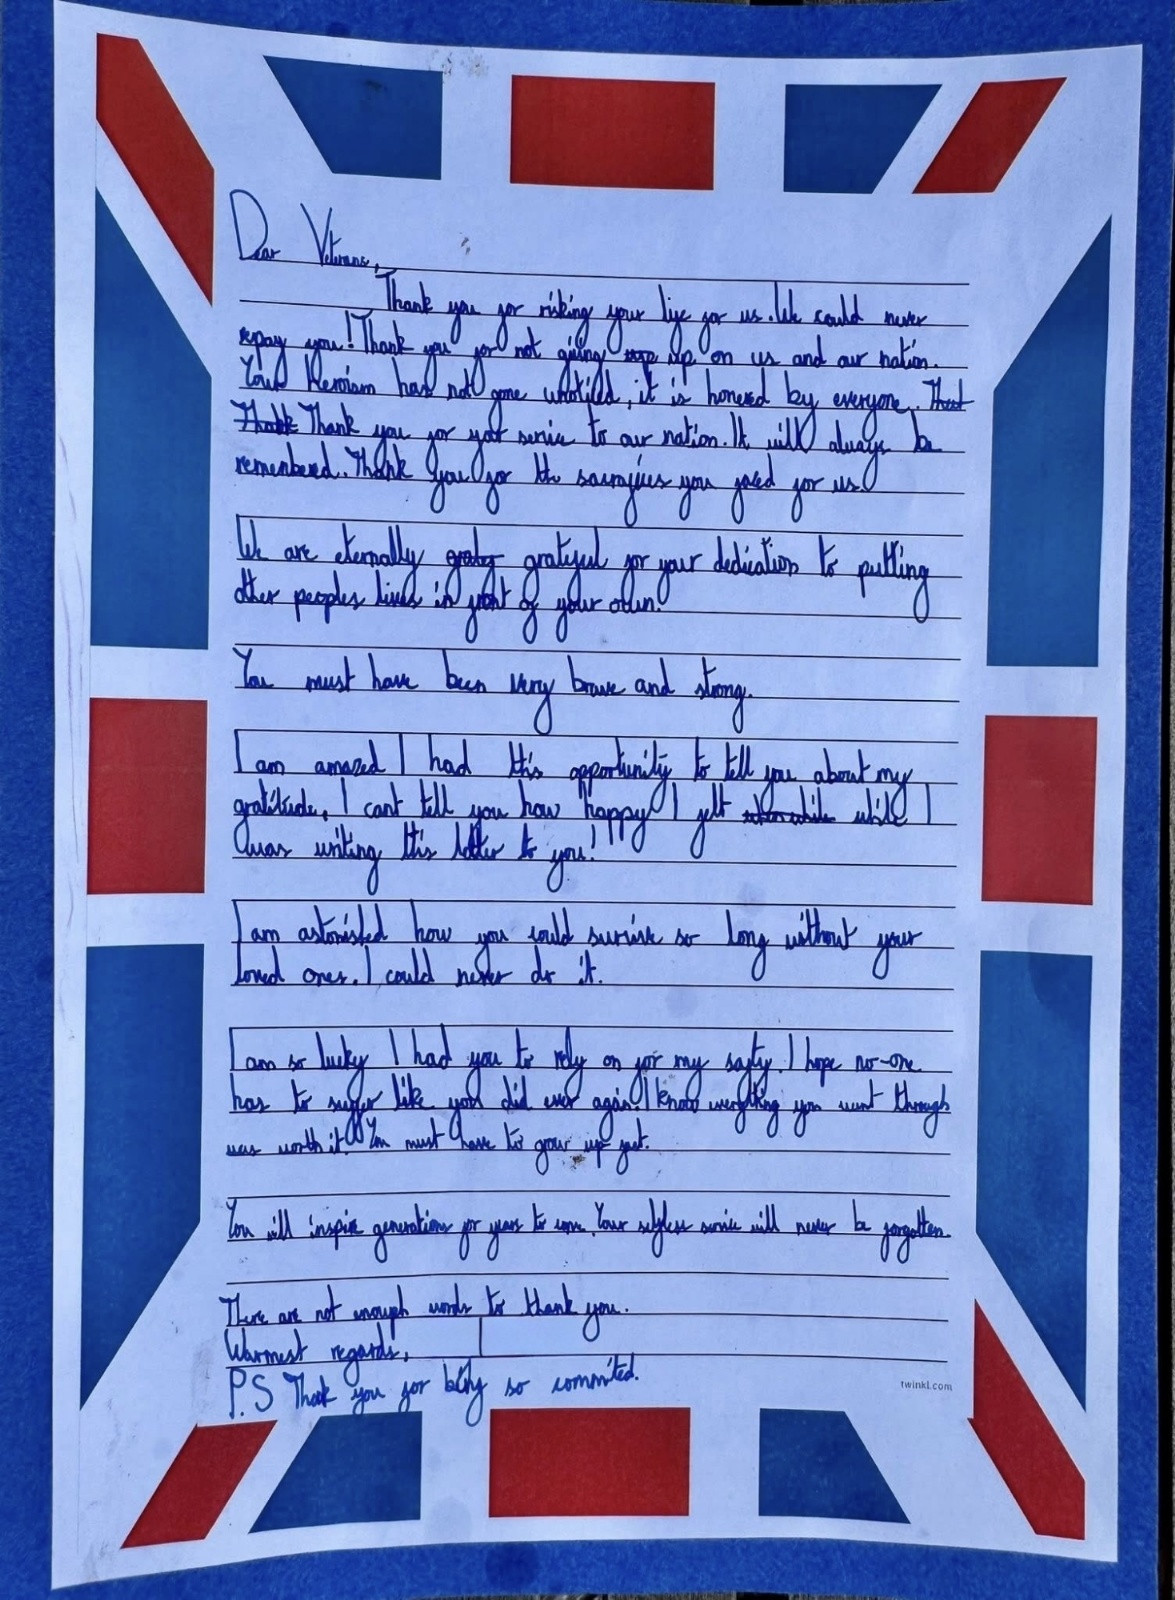 Dear Veterans,
Thank you for risking your life for us. We could never
repay you! Thank you for not giving up on us and our nation.
Your Heroism has not gone unoticed, it is honered by everyone.
Thank you for your service to our nation. It will always be
remembered. Thank you for the sacrafices you faced for us!
We are eternally grateful for your dedication to putting
other peoples lives in front of your own!
You must have been very brave and strong.
I am amazed I had this opportunity to tell you about my
gratitude. I cant tell you how happy I felt while I
was writing this letter to you!
I am astonished how you could survive so long without your
loved ones. I could never do it.
I am so lucky I had you to rely on for my safty. I hope no-one
has to suffer like you did ever again! I know everything you went through
was worth it! You must have to grow up fast.
You will inspire generations for years to come. Your selfless service will never be forgotten.
There are not enough words to thank you.
Warmest regards,
P.S Thank you for being so commited.
twinkl.com